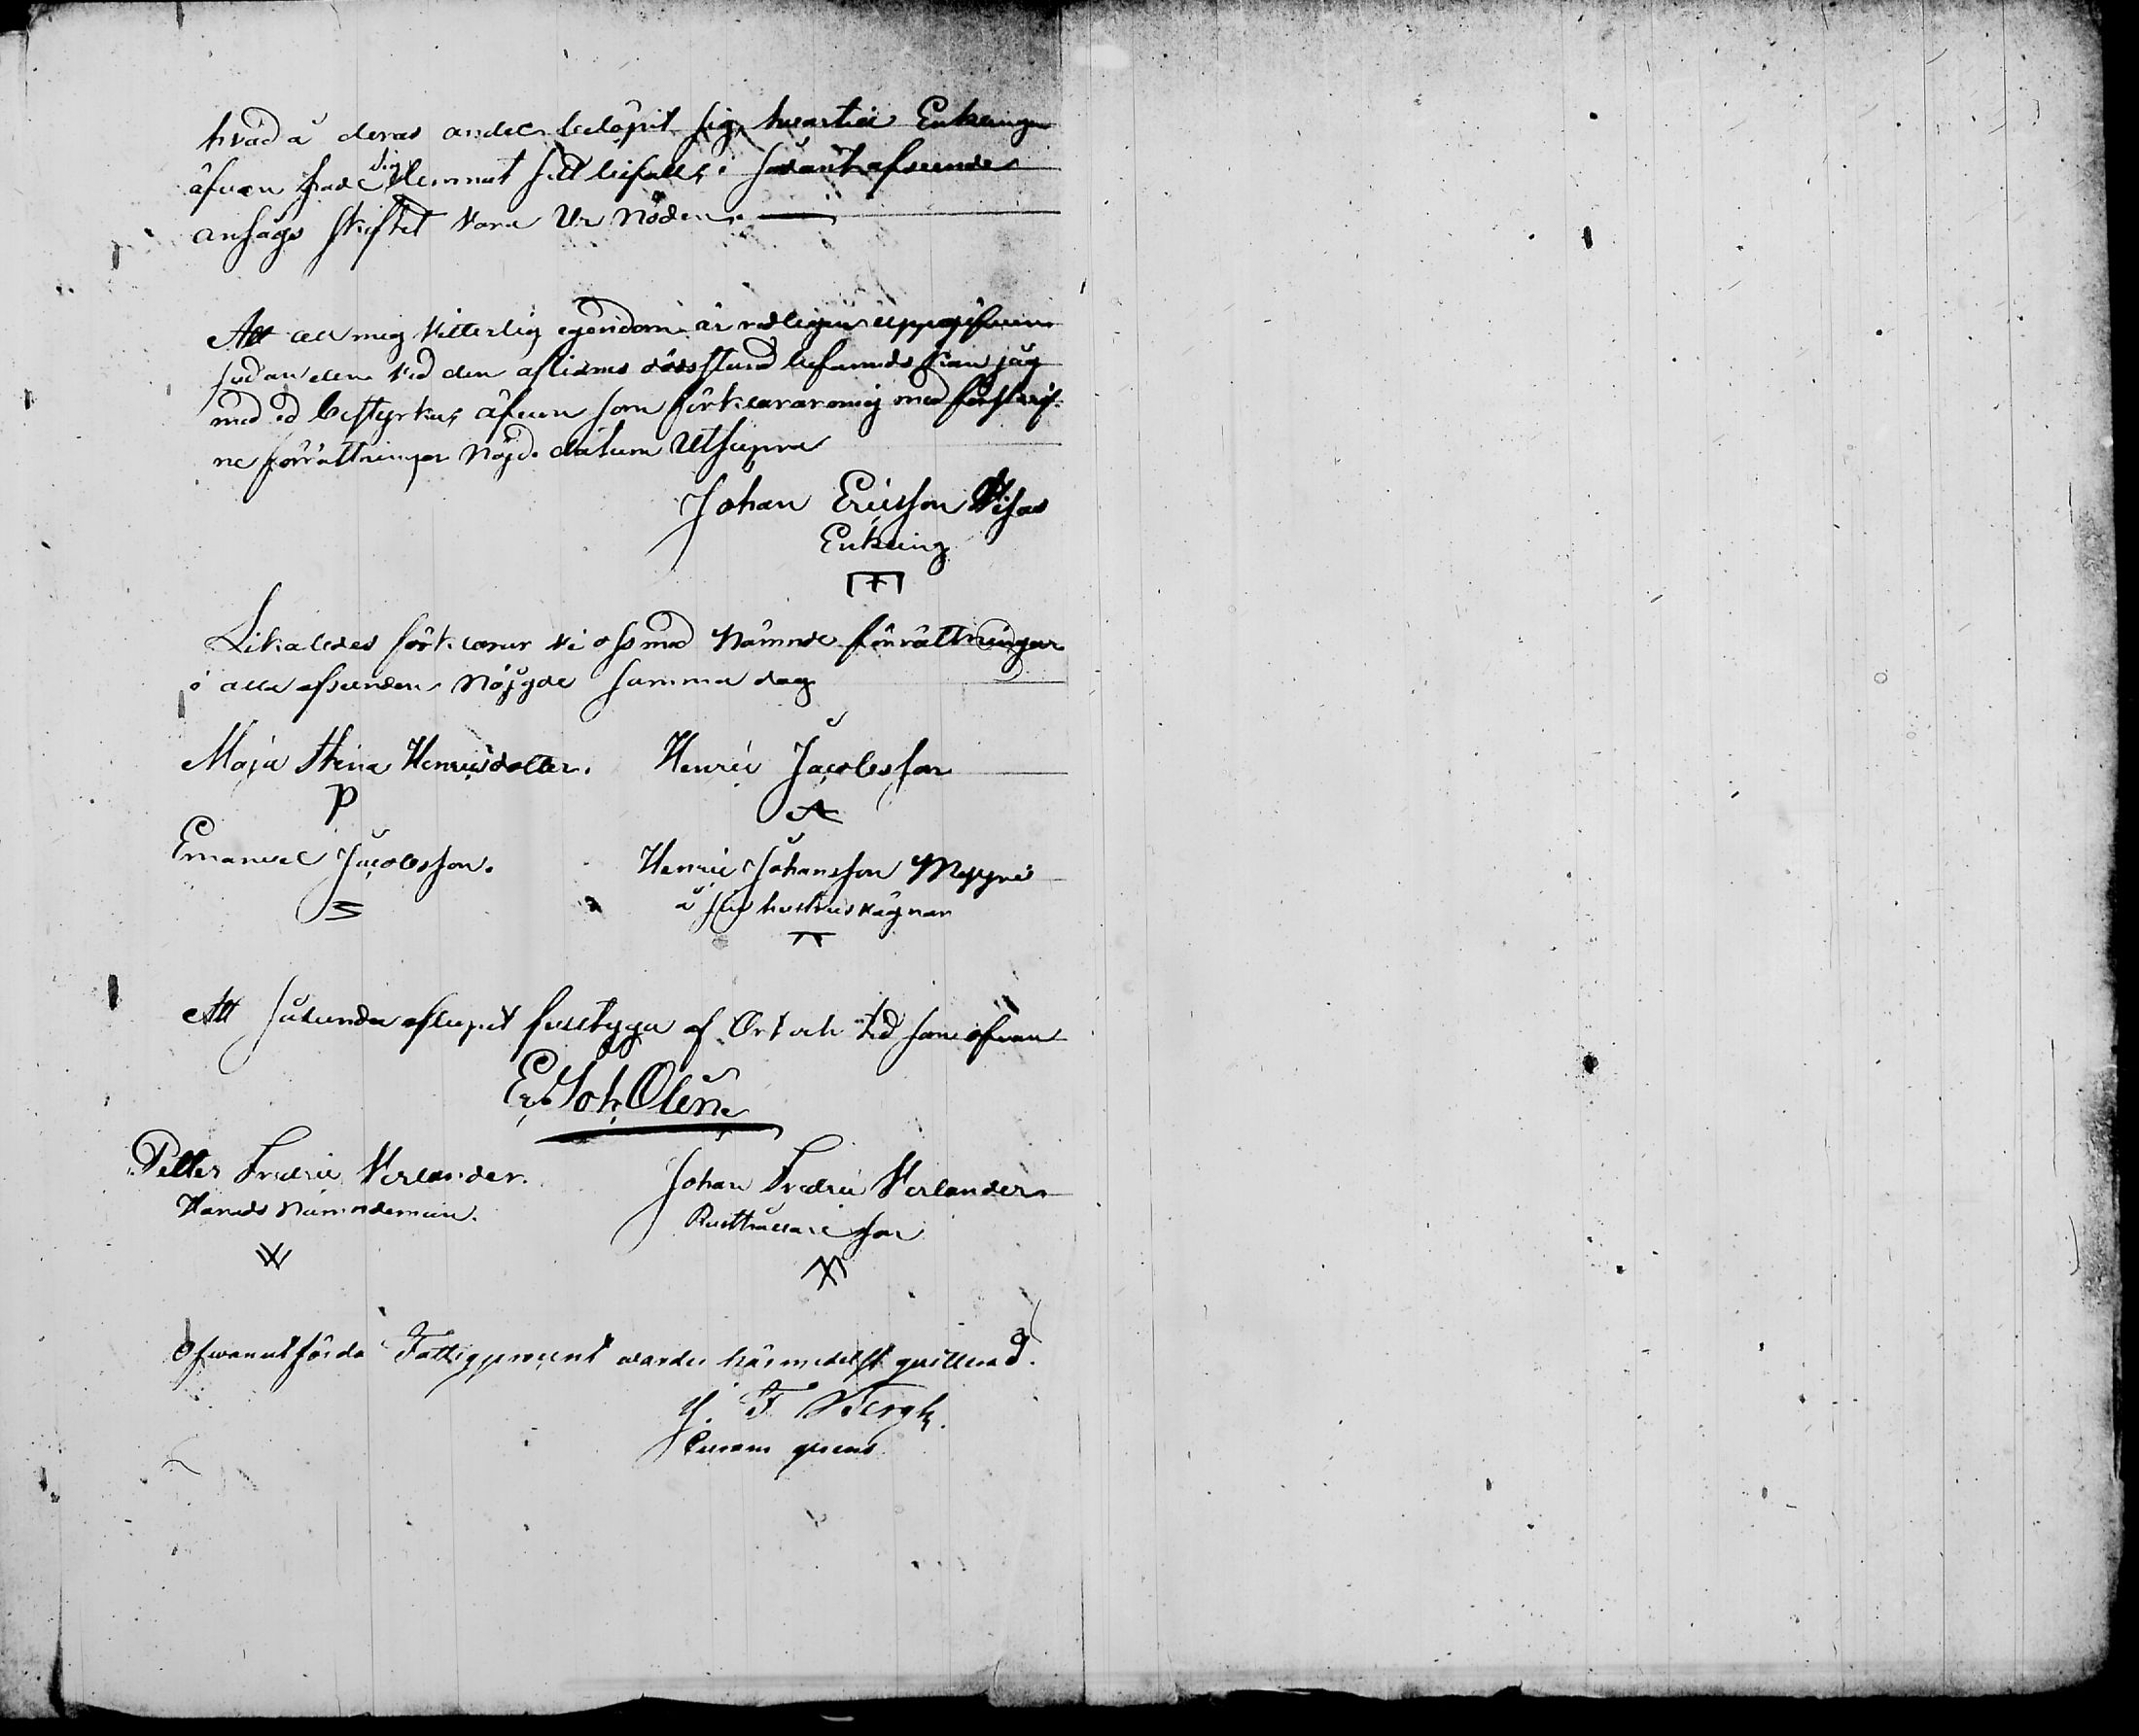 hvad å deras andel belöpit sig, hvartill Enklingen
äfven hade sin lemnat sitt bifall, i sådant afseende
ansågs skiftet vara Ur Nöden.
Att all mig vitterlig egendom är redligen uppgifven
sådan den vid den aflidnes dödsstund befanns kan jag
med ed bestyrka, äfven som förklarar mig med förskrif-
ne förrättningar Nöjd. datum Utsupra
Johan Ericsson
Enkling
Likaledes förklarar vi oss med Nämnde förrättningar
i alla afseenden Nöjgde samma dag
Maja Stina Henricsdotter. Henric Jacobsson
P A
Emanuel Jacobsson. Henric Johansson
å sin hustrus vägnar
Att sålunda aflupit fulltyga af Ort och tid som ofvan
Er. Joh. Olén
Petter Fredric Verlander. Johan Fredric Verlander
Härads Nämndeman. Rusthållare son
Ofvanutförda Fattigprocent varder härmedelst quitterad.
J. F. Bergh.